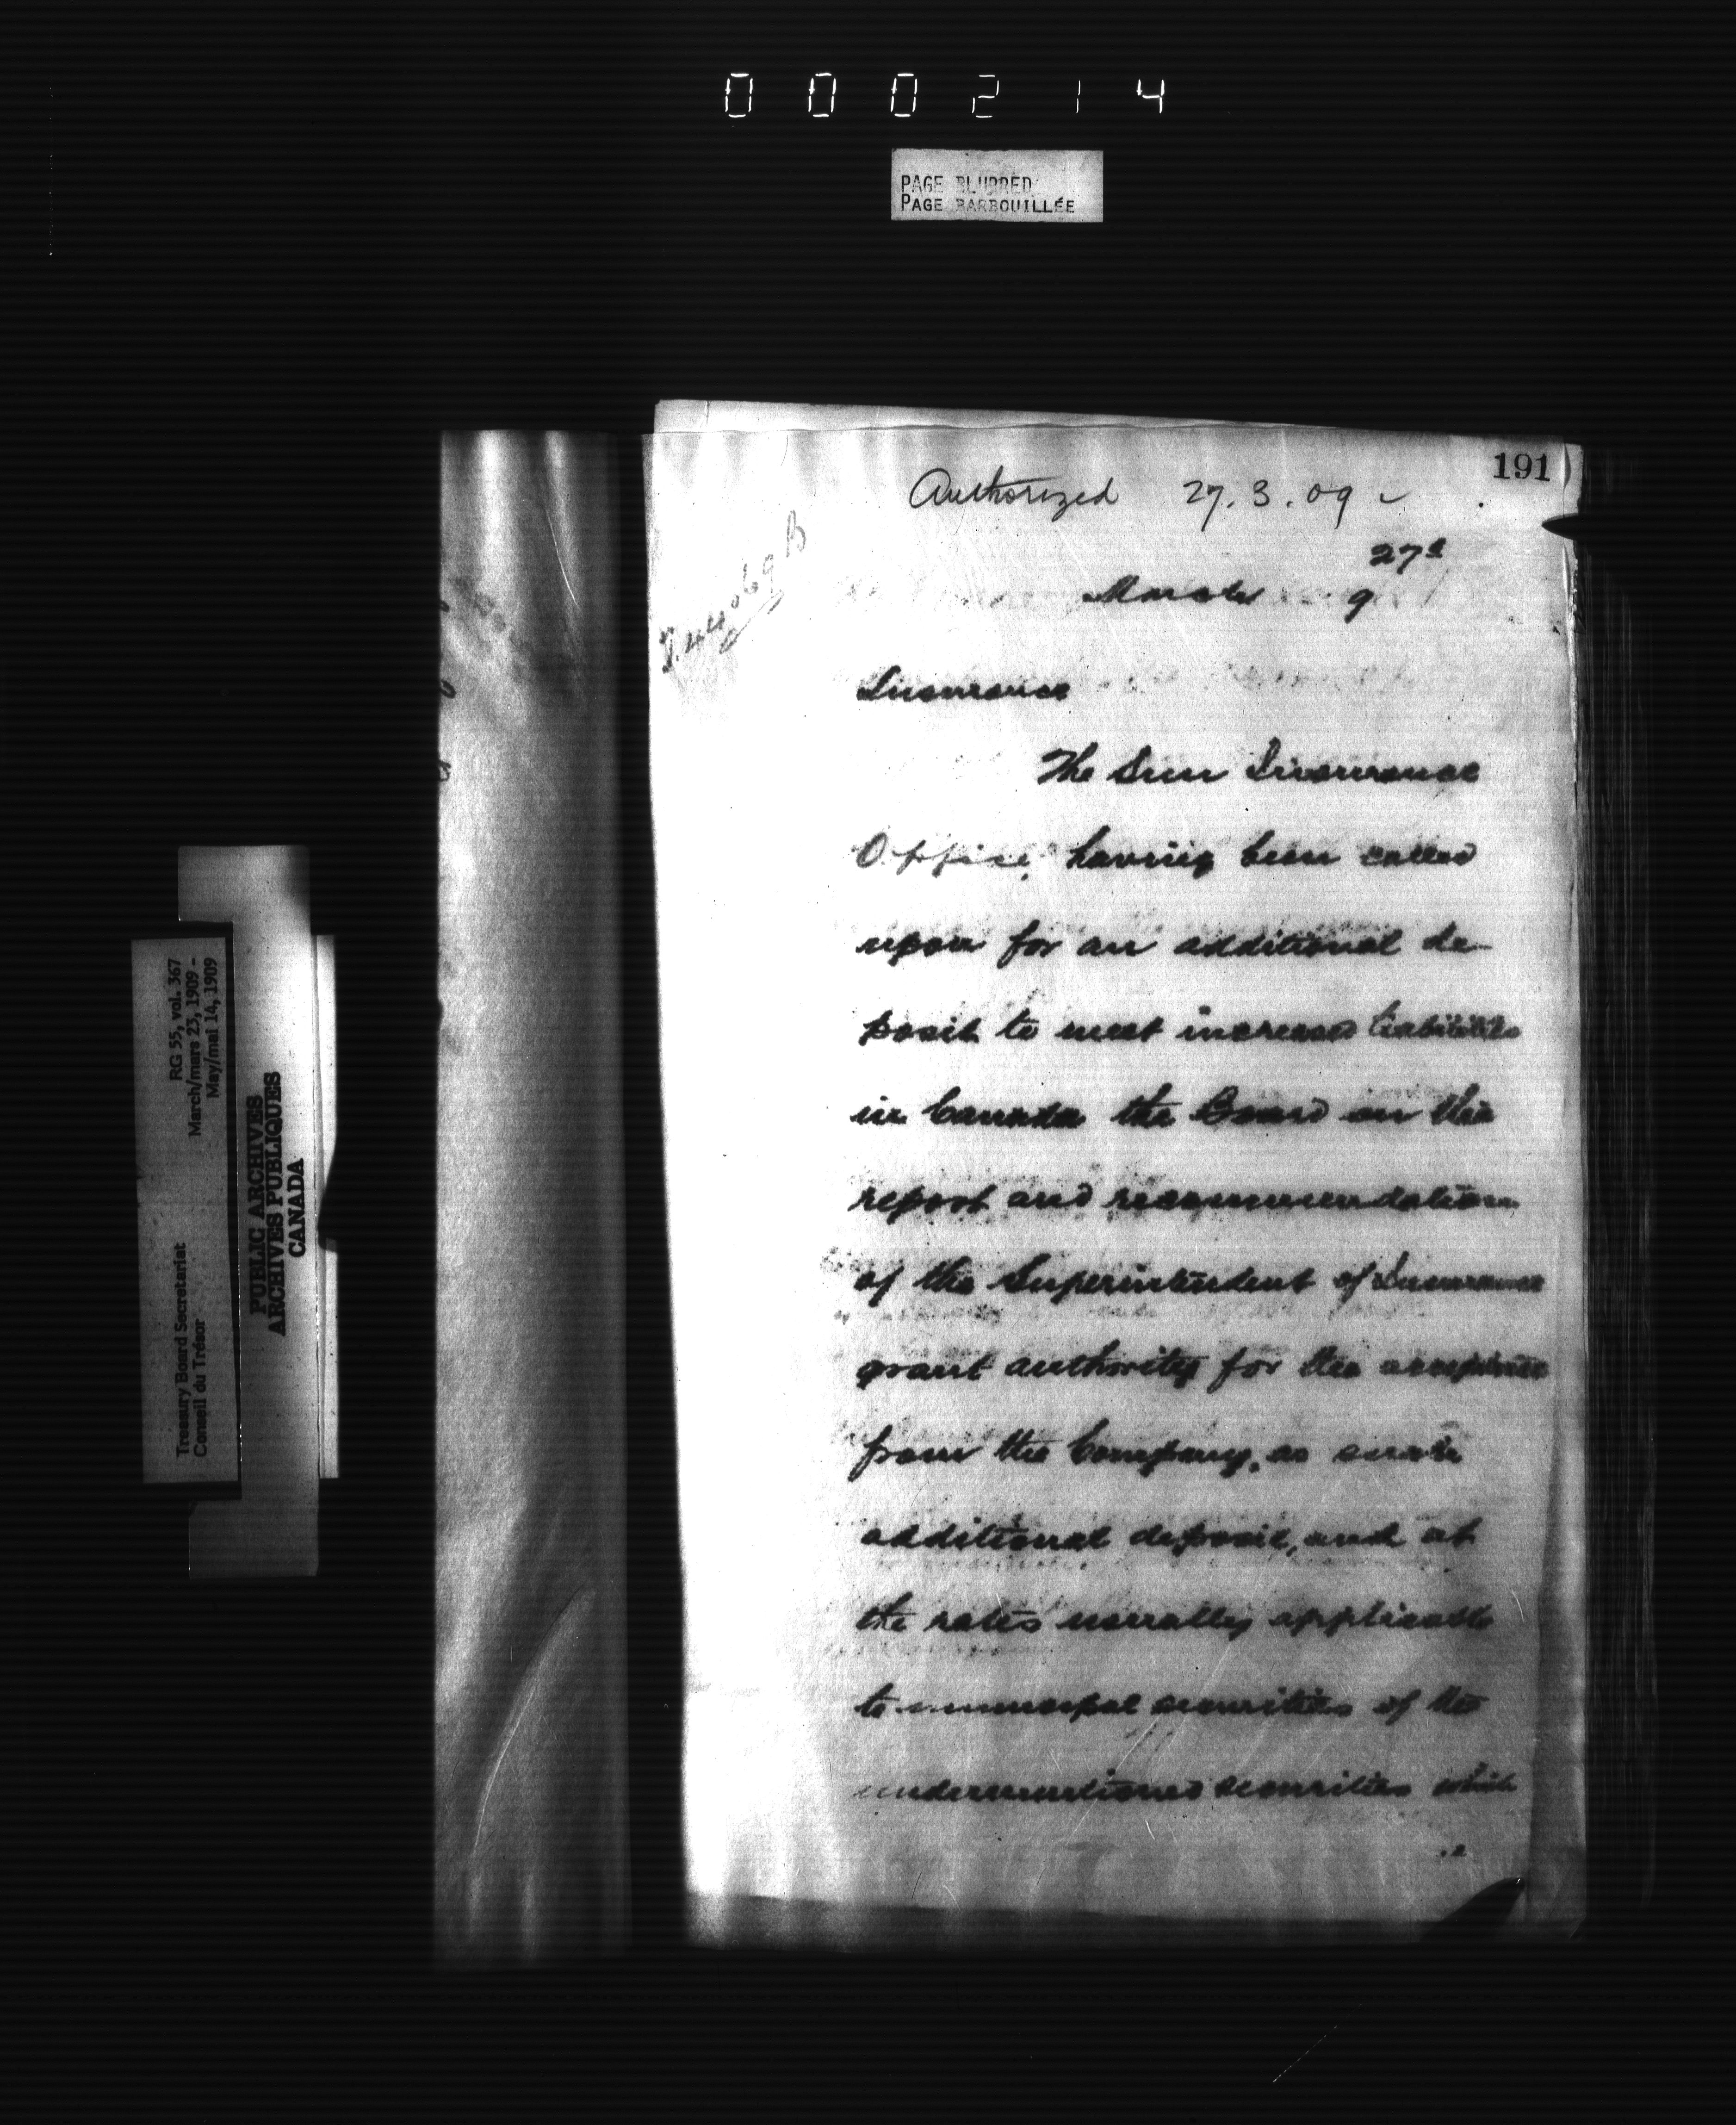 000214
PAGE BLURRED
PAGE BARBOUILLÉE
191
Authorized 27.3.09
27th
March 9
Insurance
The Sun Insurance
Office, having been called
upon for an additional de-
posit to meet increased liabilities
in Canada the Board on the
report and recommendation
of the Superintendent of Insurance
grant authority for the acceptance
from the Company, as such
additional deposit, and at
the rates usually applicable
to municipal securities of the
undermentioned securities which
RG 55, vol. 367
March/mars 23, 1909 -
May/mai 14, 1909
Treasury Board Secretariat
Conseil du Trésor
PUBLIC ARCHIVES
ARCHIVES PUBLIQUES
CANADA